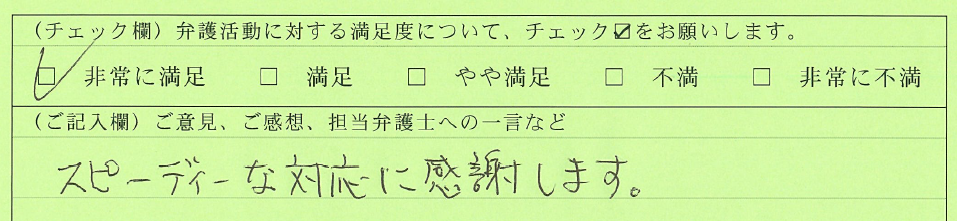 (チェック欄)弁護活動に対する満足度について、チェック☑をお願いします。
☑ 非常に満足 □ 満足 □ やや満足 □ 不満 □ 非常に不満
(ご記入欄)ご意見、ご感想、担当弁護士への一言など
スピーディーな対応に感謝します。